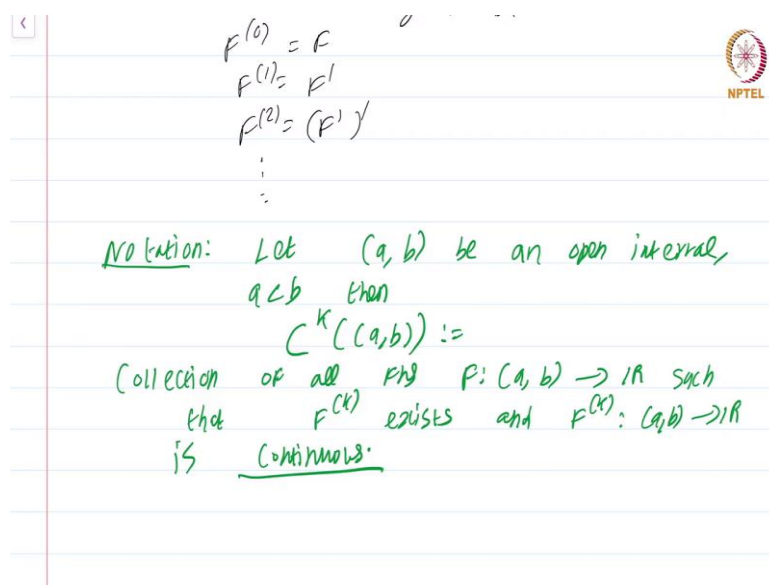 F^(0) = F
F^(1) = F'
F^(2) = (F')'
⋮
NPTEL
Notation: Let (a, b) be an open interval,
a<b then
C^k((a,b)) :=
Collection of all Fns F: (a, b) → IR such
that F^(k) exists and F^(k): (a,b) → IR
is Continuous.